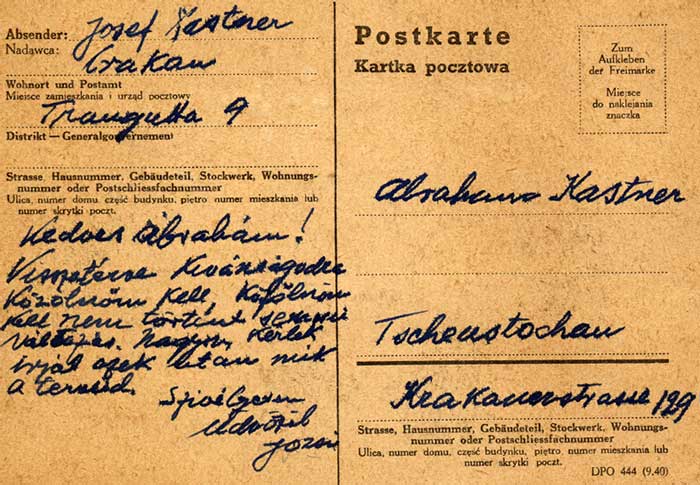 Absender: Josef Kastner
Nadawca:
Crakau
Wohnort und Postamt
Miejsce zamieszkania i urząd pocztowy
Traugutta 9
Distrikt — Generalgouvernement
Strasse, Hausnummer, Gebäudeteil, Stockwerk, Wohnungs-
nummer oder Postschliessfachnummer
Ulica, numer domu, część budynku, piętro, numer mieszkania lub
numer skrytki poczt.
Kedves Ábrahám!
Visszatérve kiváncsiságodra
közölnöm kell,
kell nem történt semmi
változás. Nagyon kérlek
írjál ezek után mik
a terveid.
Szivélyesen
üdvözöl
Józsi
Postkarte
Kartka pocztowa
Zum
Aufkleben
der Freimarke
Miejsce
do naklejania
znaczka
Abraham Kastner
Tschenstochau
Krakauerstrasse 129
Strasse, Hausnummer, Gebäudeteil, Stockwerk, Wohnungs-
nummer oder Postschliessfachnummer
Ulica, numer domu, część budynku, piętro, numer mieszkania lub
numer skrytki poczt.
DPO 444 (9.40)